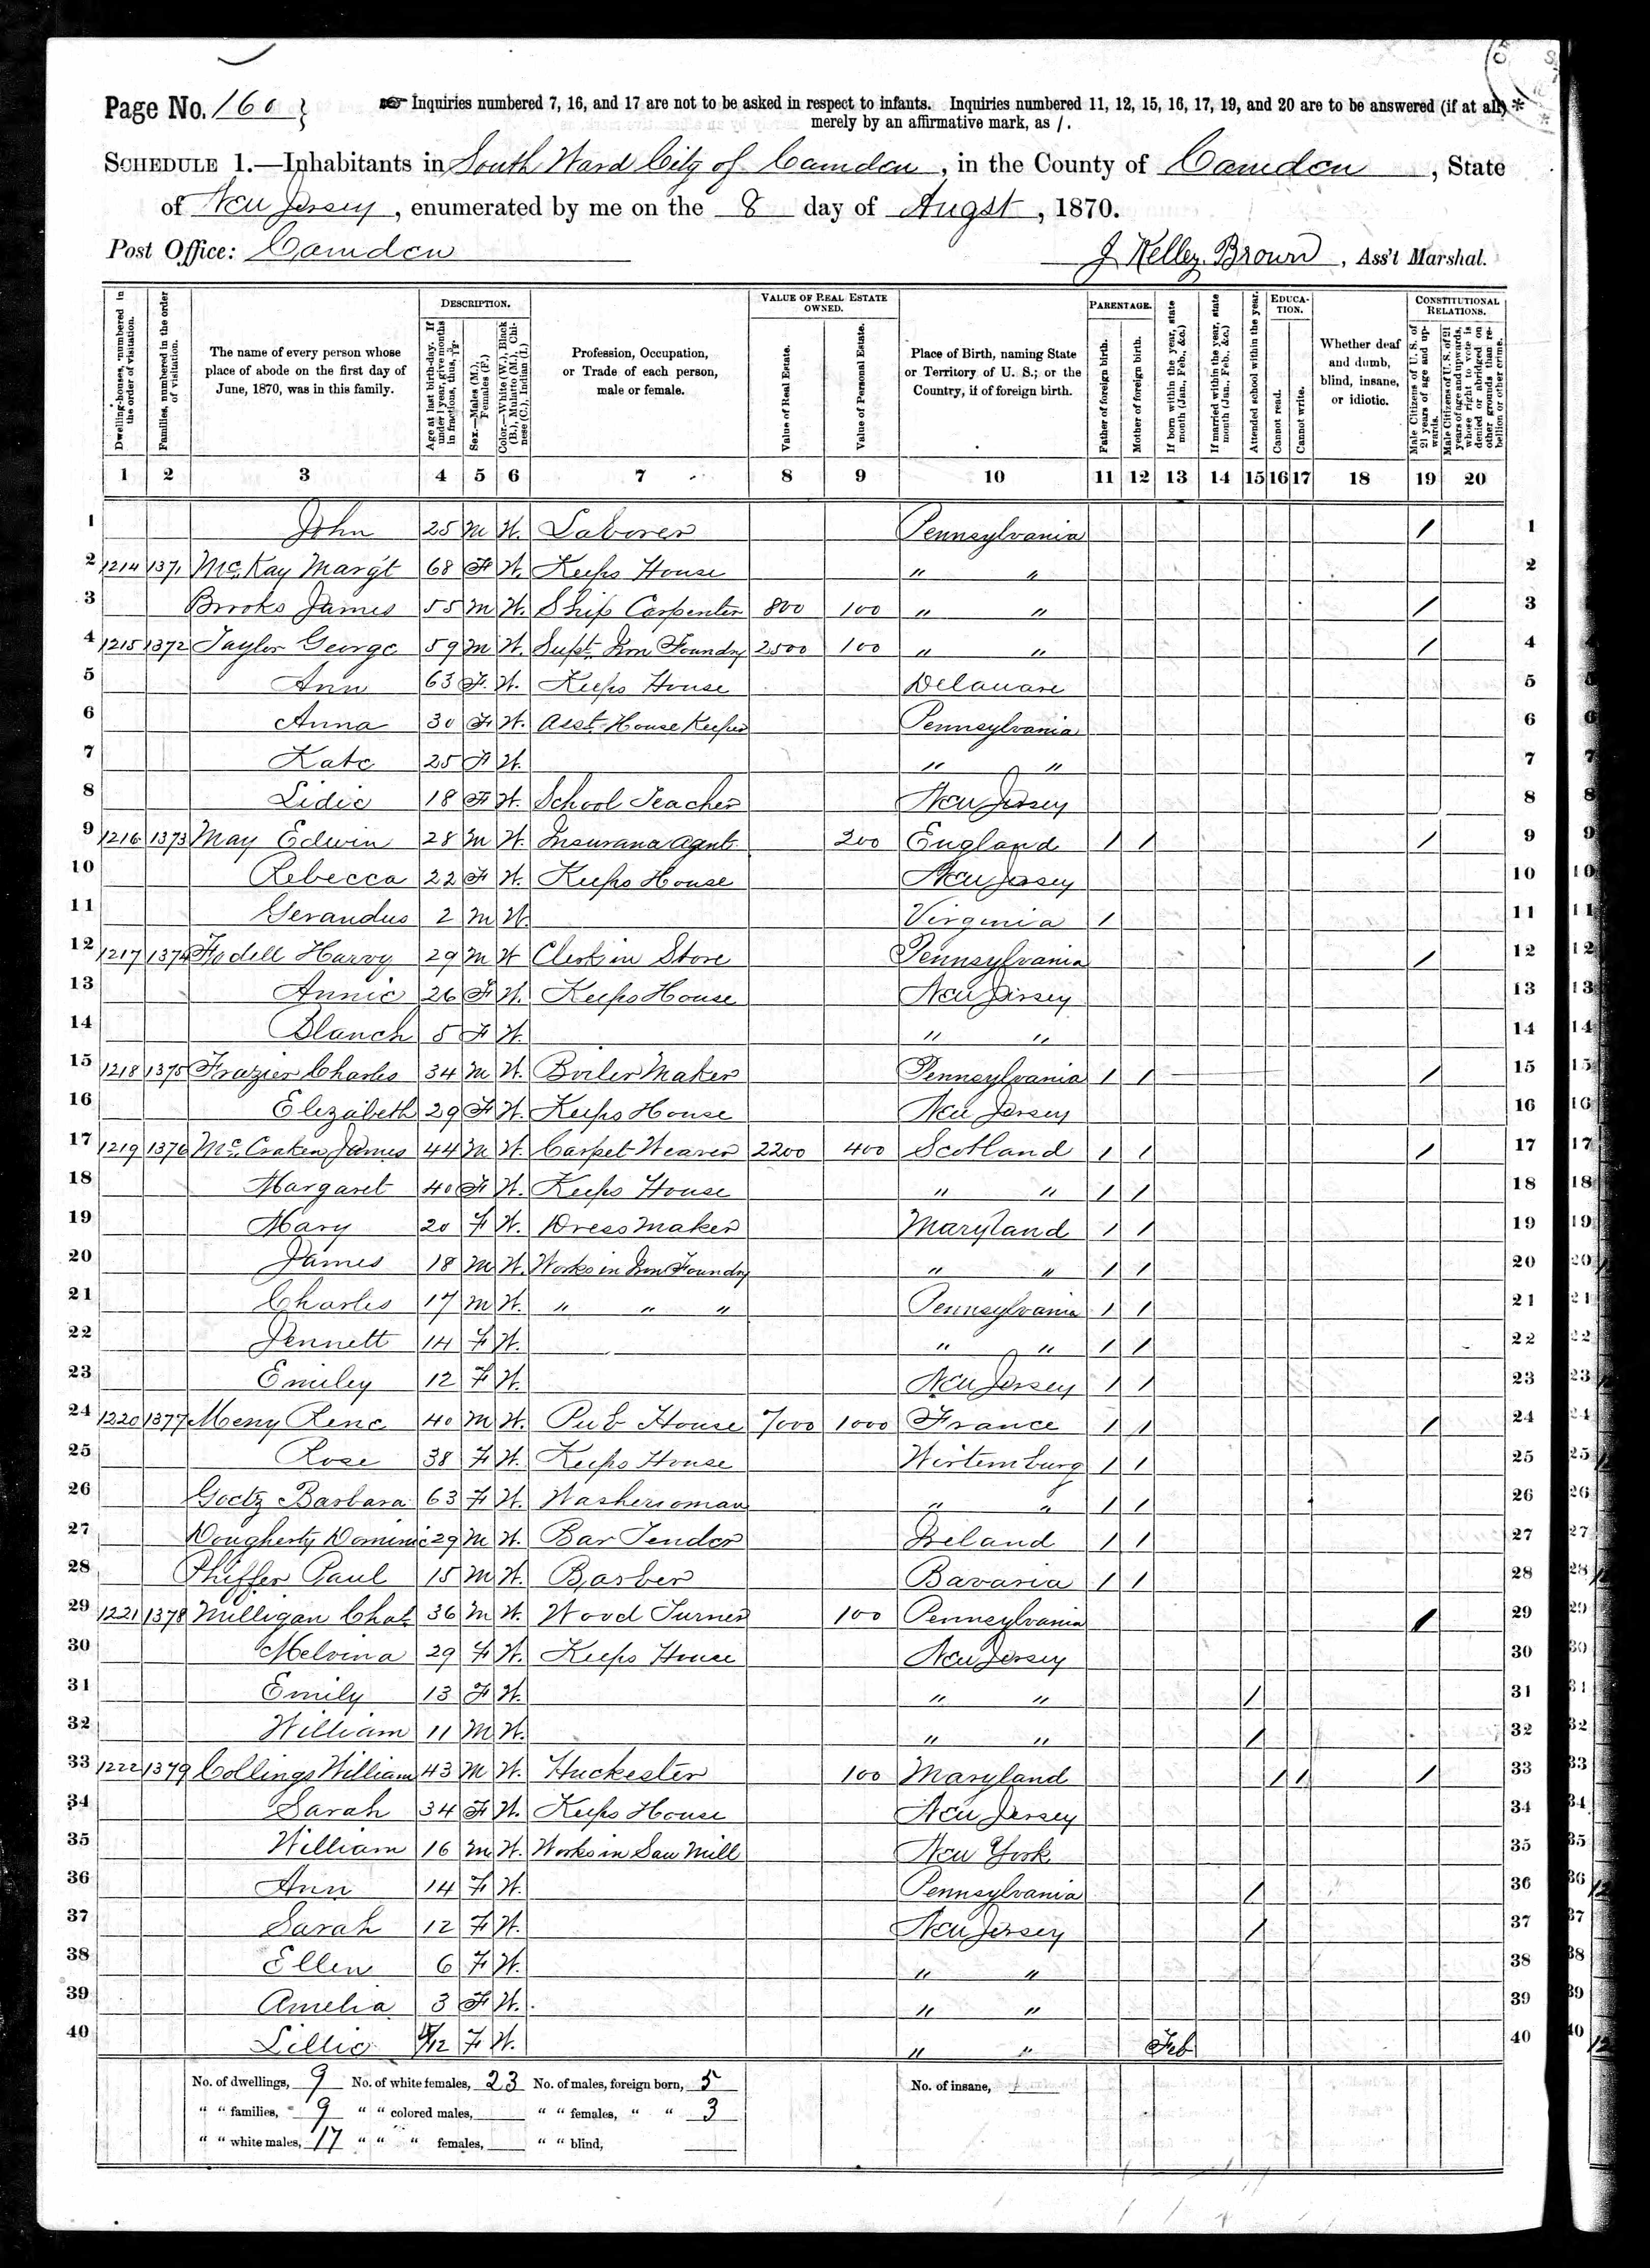 Page No. 160
Inquiries numbered 7, 16, and 17 are not to be asked in respect to infants. Inquiries numbered 11, 12, 15, 16, 17, 19, and 20 are to be answered (if at all)
merely by an affirmative mark, as /.
SCHEDULE 1.—Inhabitants in South Ward City of Camden, in the County of Camden, State
of New Jersey, enumerated by me on the 8 day of Augst, 1870.
Post Office: Camden J Kelley Brown, Ass't Marshal.
Dwelling-houses, numbered in the order of visitation.
Families, numbered in the order of visitation.
The name of every person whose place of abode on the first day of June, 1870, was in this family.
DESCRIPTION.
Age at last birth-day. If under 1 year, give months in fractions, thus, 3/12.
Sex.—Males (M.), Females (F.)
Color.—White (W.), Black (B.), Mulatto (M.), Chinese (C.), Indian (I.)
Profession, Occupation, or Trade of each person, male or female.
VALUE OF REAL ESTATE OWNED.
Value of Real Estate.
Value of Personal Estate.
Place of Birth, naming State or Territory of U. S.; or the Country, if of foreign birth.
PARENTAGE.
Father of foreign birth.
Mother of foreign birth.
If born within the year, state month (Jan., Feb., &c.)
If married within the year, state month (Jan., Feb., &c.)
Attended school within the year.
EDUCATION.
Cannot read.
Cannot write.
Whether deaf and dumb, blind, insane, or idiotic.
CONSTITUTIONAL RELATIONS.
Male Citizens of U. S. of 21 years of age and upwards.
Male Citizens of U. S. of 21 years of age and upwards, whose right to vote is denied or abridged on other grounds than rebellion or other crime.
1 2 3 4 5 6 7 8 9 10 11 12 13 14 15 16 17 18 19 20
1 John 25 M W. Laborer Pennsylvania / 1
2 1214 1371 McKay Margt 68 F W. Keeps House " " 2
3 Brooks James 55 M W. Ship Carpenter 800 100 " " / 3
4 1215 1372 Taylor George 59 M W. Supt. Iron Foundry 2500 100 " " / 4
5 Ann 63 F. W. Keeps House Delaware 5
6 Anna 30 F W. Asst. House Keeper Pennsylvania 6
7 Kate 25 F W. " " 7
8 Lidie 18 F W. School Teacher New Jersey 8
9 1216 1373 May Edwin 28 M W. Insurance Agent 200 England / / / 9
10 Rebecca 22 F W. Keeps House New Jersey 10
11 Gerandus 2 M W. Virginia / 11
12 1217 1374 Fodell Harvy 29 M W Clerk in Store Pennsylvania / 12
13 Annie 26 F W. Keeps House New Jersey 13
14 Blanch 5 F W. " " 14
15 1218 1375 Frazier Charles 34 M W. Boiler Maker Pennsylvania / / / 15
16 Elezabeth 29 F W. Keeps House New Jersey 16
17 1219 1376 McCraken James 44 M W. Carpet Weaver 2200 400 Scotland / / / 17
18 Margaret 40 F W. Keeps House " " / / 18
19 Mary 20 F W. Dress Maker Maryland / / 19
20 James 18 M W. Works in Iron Foundry " " / / 20
21 Charles 17 M W. " " " Pennsylvania / / 21
22 Jennett 14 F W. " " / / 22
23 Emiley 12 F W. New Jersey / / 23
24 1220 1377 Meny Rene 40 M W. Pub House 7000 1000 France / / / 24
25 Rose 38 F W. Keeps House Wirtemburg / / 25
26 Goetz Barbara 63 F W. Washerwoman " " / / 26
27 Dougherty Dominic 29 M W. Bar Tender Ireland / / 27
28 Phiffer Paul 15 M W. Barber Bavaria / / 28
29 1221 1378 Milligan Chas. 36 M W. Wood Turner 100 Pennsylvania / 29
30 Melvina 29 F W. Keeps House New Jersey 30
31 Emily 13 F W. " " / 31
32 William 11 M W. " " / 32
33 1222 1379 Collings William 43 M W. Huckester 100 Maryland / / / 33
34 Sarah 34 F W. Keeps House New Jersey 34
35 William 16 M W. Works in Saw Mill New York 35
36 Ann 14 F W. Pennsylvania / 36
37 Sarah 12 F W. New Jersey / 37
38 Ellen 6 F W. " " 38
39 Amelia 3 F W. " " 39
40 Lillie /12 F W. " " Feb 40
No. of dwellings, 9 No. of white females, 23 No. of males, foreign born, 5 No. of insane,
" " families, 9 " " colored males, " " females, " " 3
" " white males, 17 " " " females, " " blind,